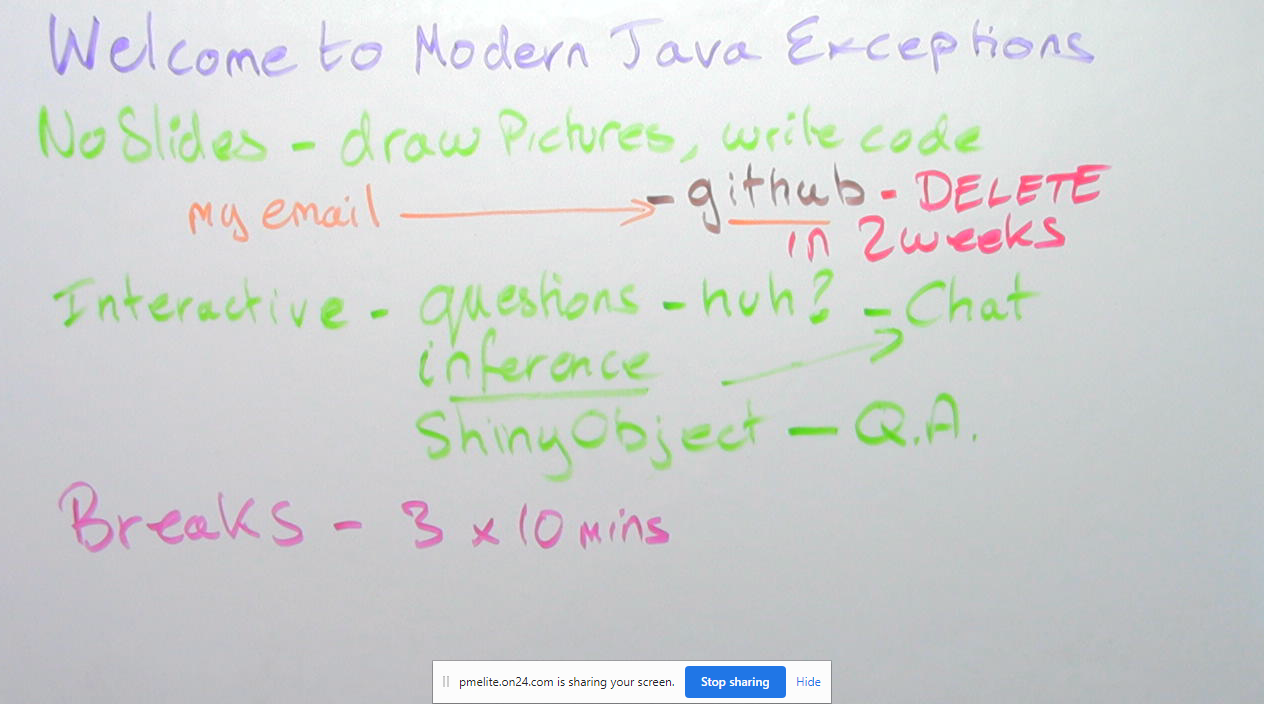 Welcome to Modern Java Exceptions
No Slides - draw Pictures, write code
my email - github - DELETE
in 2 weeks
Interactive - questions - huh? - Chat
inference
ShinyObject - Q.A.
Breaks - 3 x 10 mins
pmelite.on24.com is sharing your screen. Stop sharing Hide